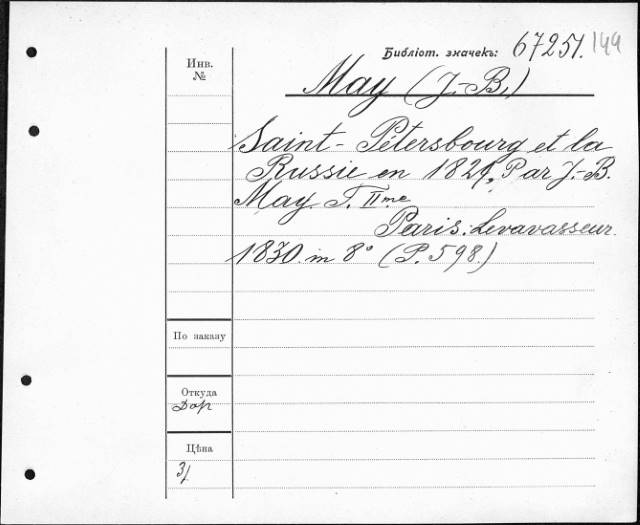 Библіот. значекъ: 67251. 144
Инв.
№
May (J.-B.)
Saint-Pétersbourg et la
Russie en 1829, Par J.-B.
May. T. IIme
Paris. Levavasseur.
1830. in 8° (P. 598.)
По заказу
Откуда
Дар
Цѣна